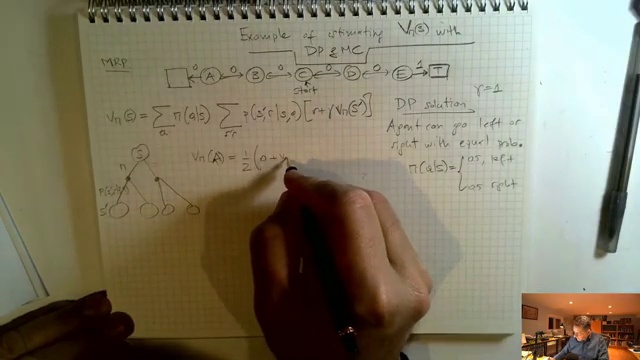 Example of estimating Vπ(s) with
DP & MC
MRP
0 0 0 0 0 1
A B C D E T
start
γ=1
Vπ(s) = Σ_a π(a|s) Σ_s'r p(s',r|s,a) [r+γVπ(s')]
DP solution
Agent can go left or
right with equal prob.
π(a|s) = { 0.5, left
0.5 right
S
π
s'
Vπ(A) = 1/2 (0+V